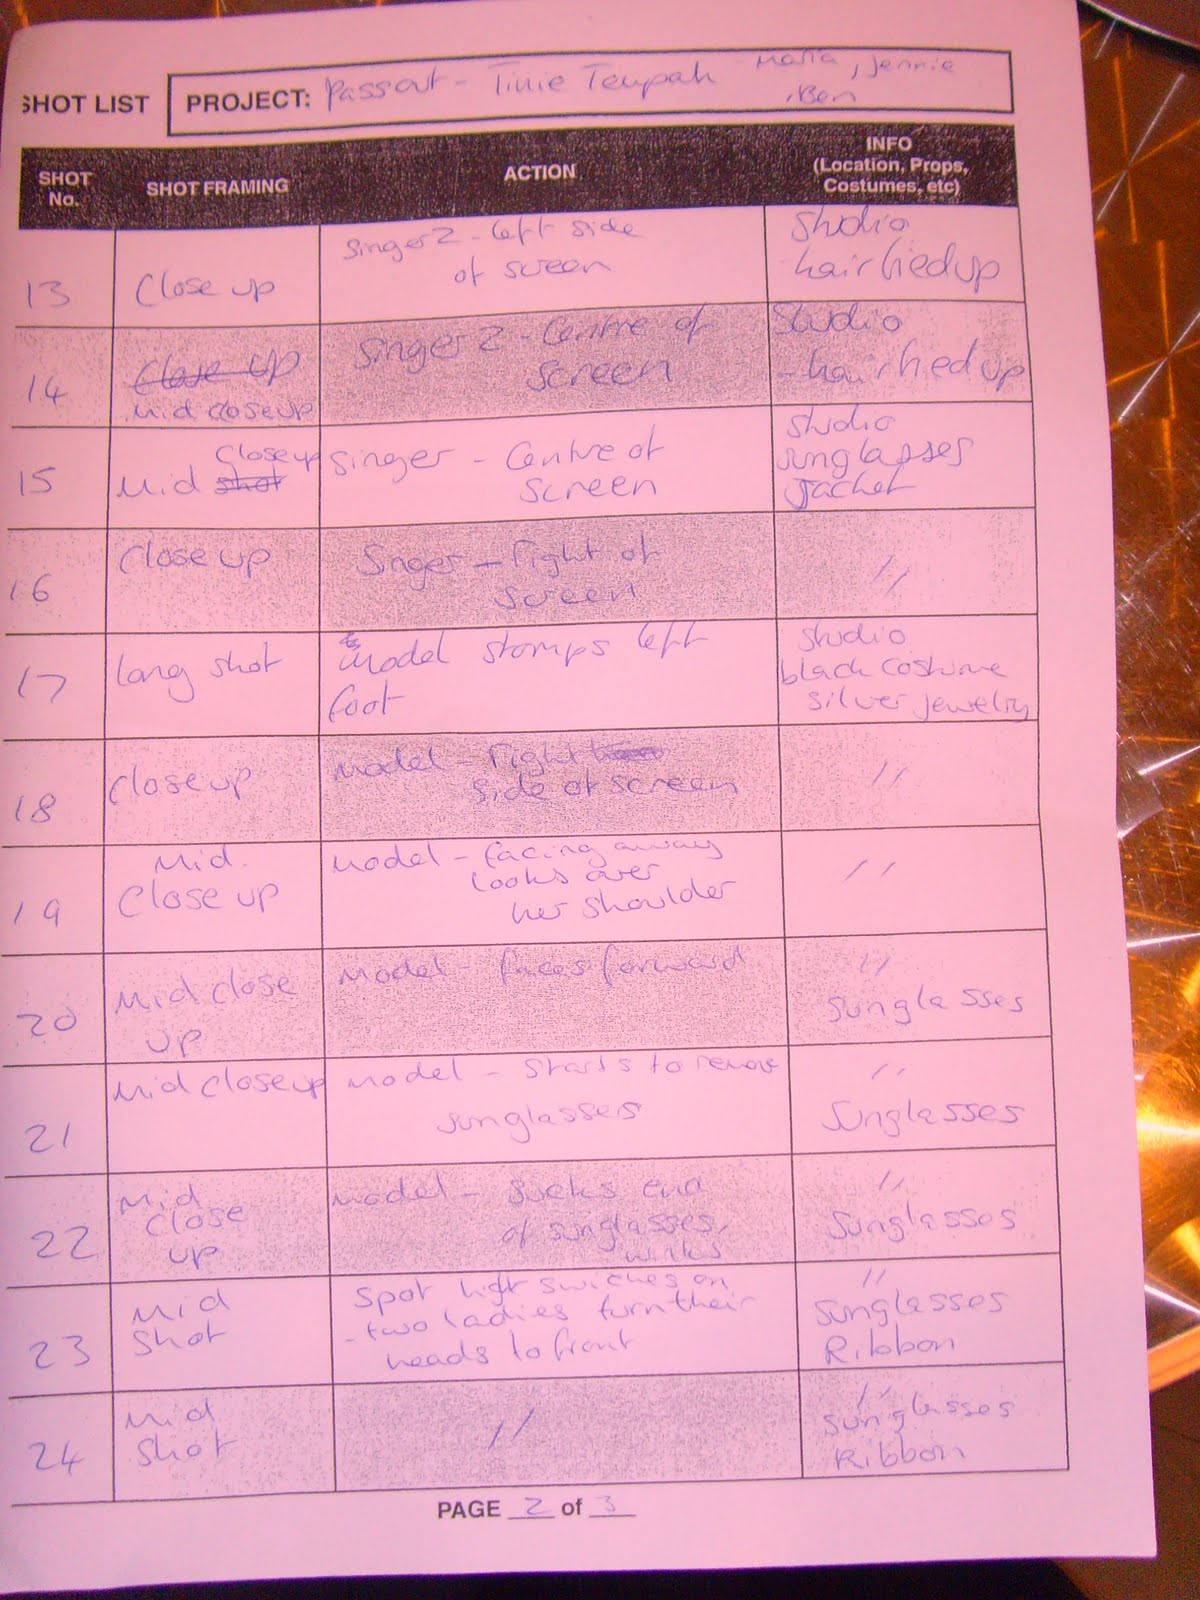 SHOT LIST PROJECT: Passout - Tinie Tempah Maria, Jennie
, Ben
SHOT No. SHOT FRAMING ACTION INFO (Location, Props, Costumes, etc)
13 Close up Singer 2 - left side of screen Studio hair tied up
14 Close up Mid close up Singer 2 - Centre of screen Studio - hair tied up
15 Mid shot Close up Singer - Centre of screen Studio sunglasses Jacket
16 Close up Singer - right of screen //
17 long shot model stomps left foot Studio black costume silver jewelry
18 Close up Model - right side of screen //
19 Mid. Close up Model - facing away looks over her shoulder //
20 Mid close up Model - faces forward // sunglasses
21 Mid close up Model - starts to remove sunglassers // Sunglasses
22 Mid close up Model - sucks end of sunglasses, winks // Sunglasses
23 Mid shot Spot light swiches on - two ladies turn their heads to front // Sunglasses Ribbon
24 Mid shot // // sunglasses Ribbon
PAGE 2 of 3